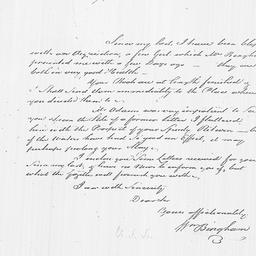 Since my last, I have been blest
with an Acquisition, a fine Girl which Mrs Bingham
presented me with a few Days ago — they are
both in very good Health —
Your Books are at length finished &
I shall send them immediately to the Place where
you desired them to
was very ingredient to
you upon the Sale of a former letter I flattered
him with the Prospect of your Speedy Return — but
if the Waters have had it good an Effect, it may
perhaps prolong your Stay.
I inclose you Some Letters received for you
Since my last, I have no News to inform you of, but
what the Gazettes will furnish you with
I am with Sincerity
Dear Sir
Yours affectionately
Wm Bingham